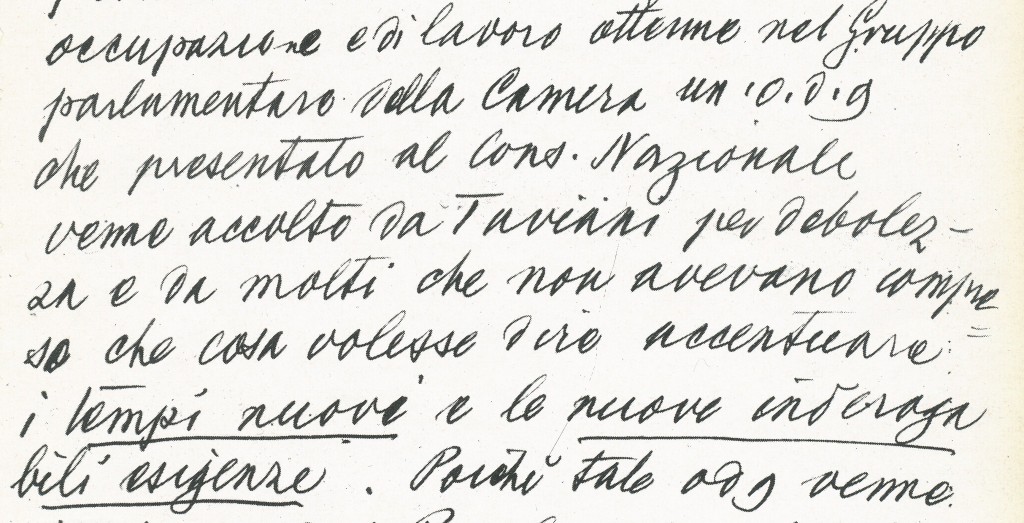 occupazione e di lavoro ottenne nel Gruppo
parlamentare della Camera un o.d.g
che presentato al Cons. Nazionale
venne accolto da Taviani per debolez-
za e da molti che non avevano compre
so che cosa volesse dire accentuare
i tempi nuovi e le nuove inderoga
bili esigenze. Poiché tale odg venne